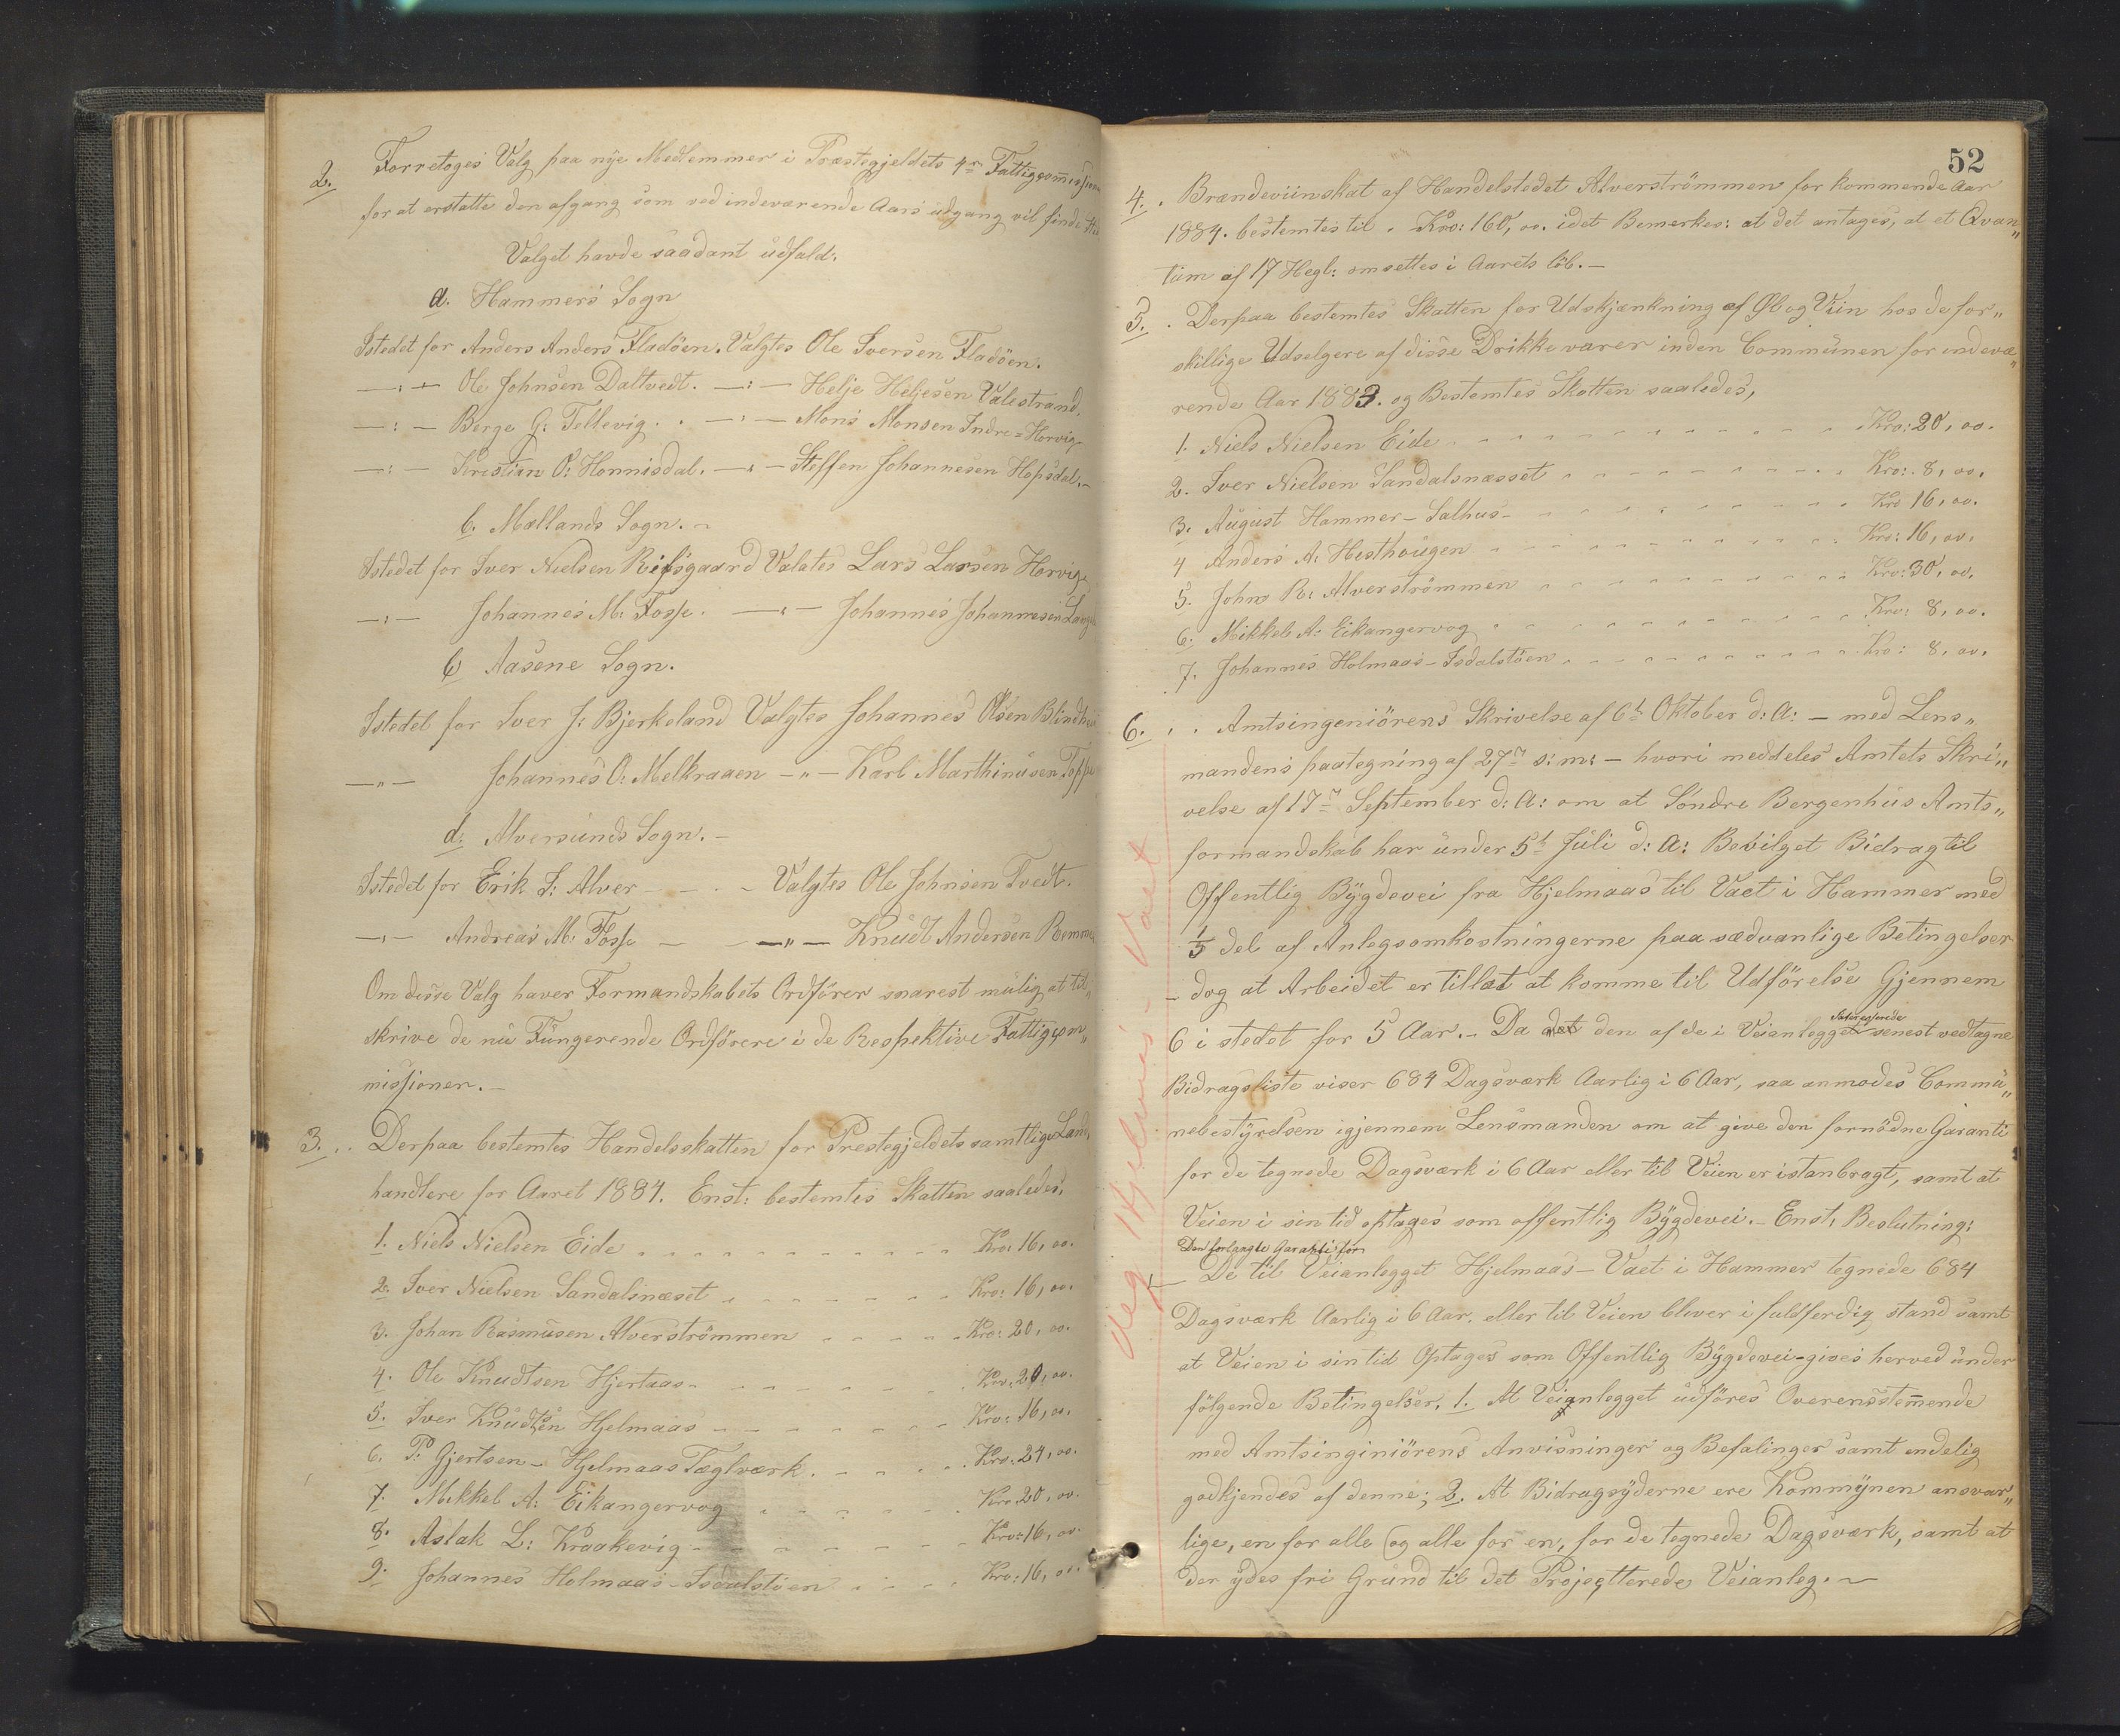 2. Forretoges Valg paa nÿe Medlemmer i Præstegjeldets 4re Fattigcommission
for at erstatte den afgang som ved indeværende Aars udgang vil finde sted
Valget havde saadant udfald.
a. Hammers Sogn
Istedet for Anders Anders Fladöen. Valgtes Ole Iversen Fladöen.
—:— Ole Johnsen Daltvedt. —:— Helje Heljesen Valestrand.
—:— Berge G: Tellevig. . —:— Mons Monsen Indre=Horvig.
—:— Kristian O: Honnisdal. —:— Steffen Johannesen Hopsdal.–
b. Mællands Sogn. –
Istedet for Iver Nielsen Risgaard Valgtes Lars Larsen Horvig
—:— Johannes M: Fosse. —:— Johannes Johannesen
c Aasene Sogn.
Istedet for Iver J: Bjerkeland Valgtes Johannes Olsen
—"— Johannes O: Melkraaen —"— Karl Marthinusen Toppe
d. Alversunds Sogn. –
Istedet for Erik I: Alver – – . – Valgtes Ole Johnsen Tvedt.
—:— Andreas M: Fosse — — —"— Knudt Andersen
Om disse Valg haver Formandskabets Ordförer snarest mulig at til„
skrive de nu Fungerende Ordförere i de Respektive Fattigcom„
missioner. –
3. . . Derpaa bestemtes Handelsskatten for Prestegjeldets samtlige Land„
handlere for Aaret 1884. Enst: bestemtes Skatten saaledes,
1. Niels Nielsen Eide . . . . . . . . . . Kro: 16,00.
2. Iver Nielsen Sandalsnæset . . . . . . . Kro: 16,00.
3. Johan Rasmusen Alverströmmen . . . . . Kro: 20,00.
4. Ole Knudtsen Hjertaas . . . . . . . . Kro: 20,00.
5. Iver Knudtsen Hjelmaas . . . . . . . . Kro: 16,00.
6. P: Gjertsen – Hjelmaas Tæglværk . . . . . Kro: 24,00.
7. Mikkel A: Eikangervog . . . . . . . Kro 20,00.
8. Aslak L: Kraakevig . . . . . . . . Kro: 16,00.
9. Johannes Holmaas – Isdalstöen . . . . Kro: 16,00.
52
4. . Brændeviinskat af Handelstedet Alverströmmen for kommende Aar
1884. bestemtes til . Kro: 160,00. idet Bemerkes: at det antages, at et Qvan„
tum af 17 Hegl: omsettes i Aarets löb. –
5. . Derpaa bestemtes Skatten for Udskjænkning af Øl og Viin hos de for„
skillige Udselgere af disse Drikkevarer inden Communen for indevæ„
rende Aar 1883. og Bestemtes Skatten saaledes,
1. Niels Nielsen Eide . . . . . . . . . . . . Kro: 20,00.
2. Iver Nielsen Sandalsnæsset . . . . . . . . . Kro: 8,00.
3. August Hammer – Salhus – . . . . . . . . . Kro 16,00.
4 Anders A: Hesthougen . . . . . . . . . . Kro: 16,00.
5. Johns R: Alverströmmen . . . . . . . . . Kro: 30,00.
6. Mikkel A: Eikangervog . . . . . . . . . . Kro: 8,00.
7. Johannes Holmaas – Isdalstöen . . . . . . . . Kro: 8,00.
6. . . Amtsingeniörens Skrivelse af 6t Oktober d: A: – med Lens„
mandens paategning af 27de s: m: – hvori meddeles Amtets Skri„
velse af 17de September d: A: om at Söndre Bergenhus Amts„
formandskab har under 5t Juli d: A: Bevilget Bidrag til
Offentlig Bÿgdevei fra Hjelmaas til Vaet i Hammer med
1/5 del af Anlegsomkostningerne paa sædvanlige Betingelser
– dog at Arbeidet er tillat at komme til Udförelse Gjennem
6 i stedet for 5 Aar. – Da det den af de i Veianlegget Interesserede senest vedtagne
Bidragsliste viser 684 Dagsværk Aarlig i 6 Aar, saa anmodes Commu„
nebestÿrelsen igjennem Lensmanden om at give den fornödne Garanti
for de tegnede Dagsværk i 6 Aar eller til Veien er istanbragt, samt at
Veien i sin tid optages som offentlig Bÿgdevei. – Enst, Beslutning:
Den forlangte Garanti for
De til Veianlegget Hjelmaas – Vaet i Hammer tegnede 684
Dagsværk Aarlig i 6 Aar, eller til Veien bliver i fuldferdig stand samt
at Veien i sin tid Optages som Offentlig Bÿgdevei – gives herved under
fölgende Betingelser. 1. At Veianlegget udföres Overensstemmende
med Amtsinginiörens Anvisninger og Befalinger samt endelig
godkjendes af denne; 2. At Bidragsÿderne ere Kommÿnen ansvar„
lige, en for alle og alle for en, for de tegnede Dagsværk, samt at
der ÿdes fri Grund til det Projectterede Veianleg. –